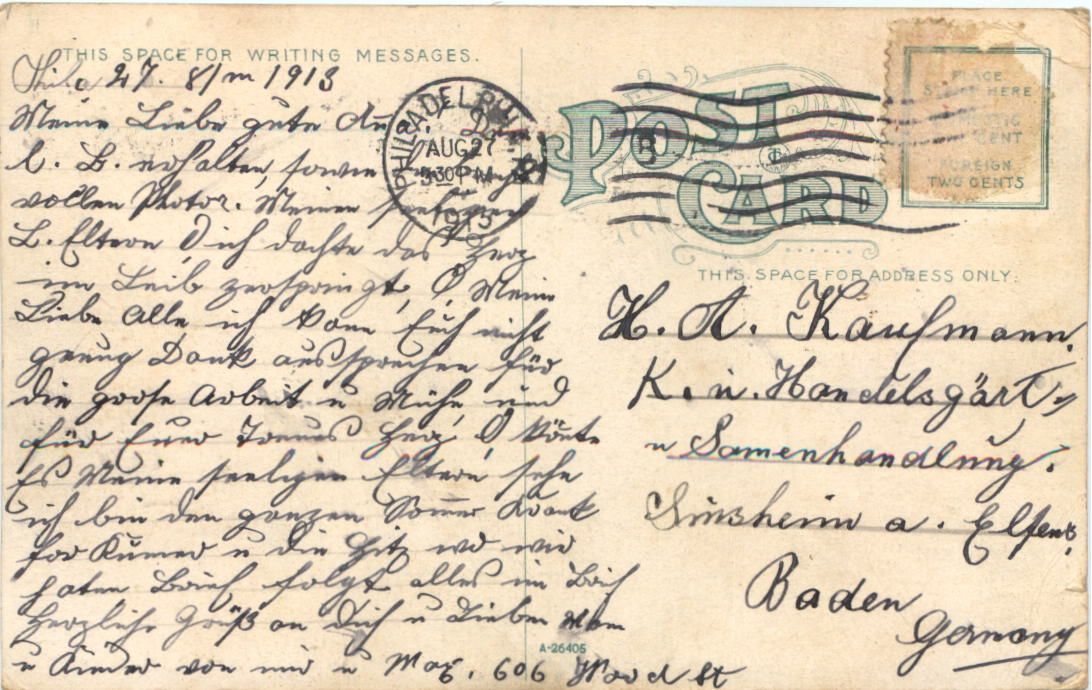 THIS SPACE FOR WRITING MESSAGES.
Phila 27. 8/m 1913
Meine Liebe gute
L. B. erhalten, sowie
vollen Photos. Meinen
L. Eltern O ich dachte das Herz
im Leib zerspringt, O Meine
Liebe Alle ich kann Euch nicht
genug Dank aussprechen für
die grose Arbeit u Mühe, und
für Euer Treues Herz, O könte
Es Meine seeligen Eltern sehe
ich bin den ganzen Sommer Krank
for Kumer u die Hitz wo wir
haten Brief folgt alles im Brif
Herzliche Grüß an Dich u Lieben Man
u Kinder von mir u Max. 606 Wood St
PHILADELPHIA
AUG 27
3 30 PM
1913
B
POST CARD
PLACE
STAMP HERE
DOMESTIC
ONE CENT
FOREIGN
TWO CENTS
THIS SPACE FOR ADDRESS ONLY.
H. A. Kaufmann.
K. u. Handelsgärt
u Samenhandlung.
Sinsheim a. Elsenz
Baden
Germany
A-26405